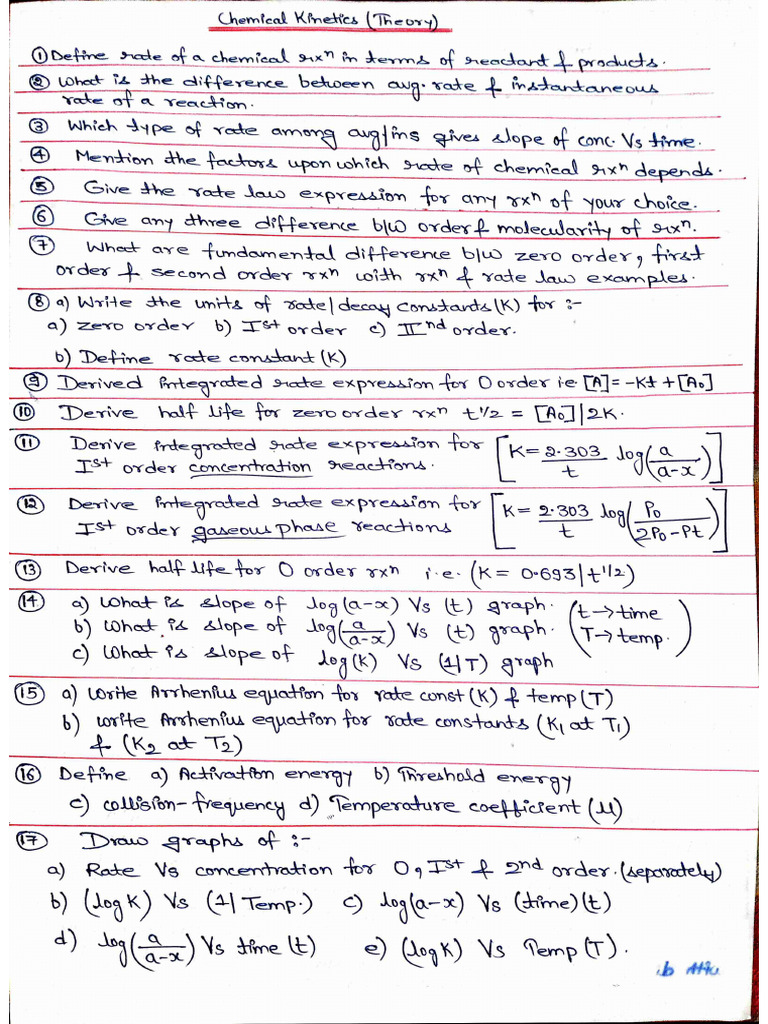 Chemical Kinetics (Theory)
① Define rate of a chemical rxⁿ in terms of reactant & products.
② What is the difference between avg. rate & instantaneous
rate of a reaction.
③ Which type of rate among avg/ins gives slope of conc. Vs time.
④ Mention the factors upon which rate of chemical rxⁿ depends.
⑤ Give the rate law expression for any rxⁿ of your choice.
⑥ Give any three difference b/w order & molecularity of rxⁿ.
⑦ What are fundamental difference b/w zero order, first
order & second order rxⁿ with rxⁿ & rate law examples.
⑧ a) Write the units of rate/decay constants (K) for :-
a) zero order b) Iˢᵗ order c) IIⁿᵈ order.
b) Define rate constant (K)
⑨ Derived integrated rate expression for 0 order i.e. [A] = -Kt + [A₀]
⑩ Derive half life for zero order rxⁿ t½ = [A₀]/2K.
⑪ Derive integrated rate expression for [K = 2.303/t log(a/a-x)]
Iˢᵗ order concentration reactions.
⑫ Derive integrated rate expression for [K = 2.303/t log(P₀/2P₀-Pt)]
Iˢᵗ order gaseous phase reactions
⑬ Derive half life for 0 order rxⁿ i.e. (K = 0.693/t½)
⑭ a) What is slope of log(a-x) Vs (t) graph. (t→time
b) What is slope of log(a/a-x) Vs (t) graph. T→temp.)
c) What is slope of log(K) Vs (1/T) graph
⑮ a) Write Arrhenius equation for rate const (K) & temp (T)
b) write Arrhenius equation for rate constants (K₁ at T₁)
& (K₂ at T₂)
⑯ Define a) Activation energy b) Threshold energy
c) collision-frequency d) Temperature coefficient (μ)
⑰ Draw graphs of :-
a) Rate Vs concentration for 0, Iˢᵗ & 2nd order. (separately)
b) (log K) Vs (1/Temp.) c) log(a-x) Vs (time)(t)
d) log(a/a-x) Vs time (t) e) (log K) Vs Temp (T).